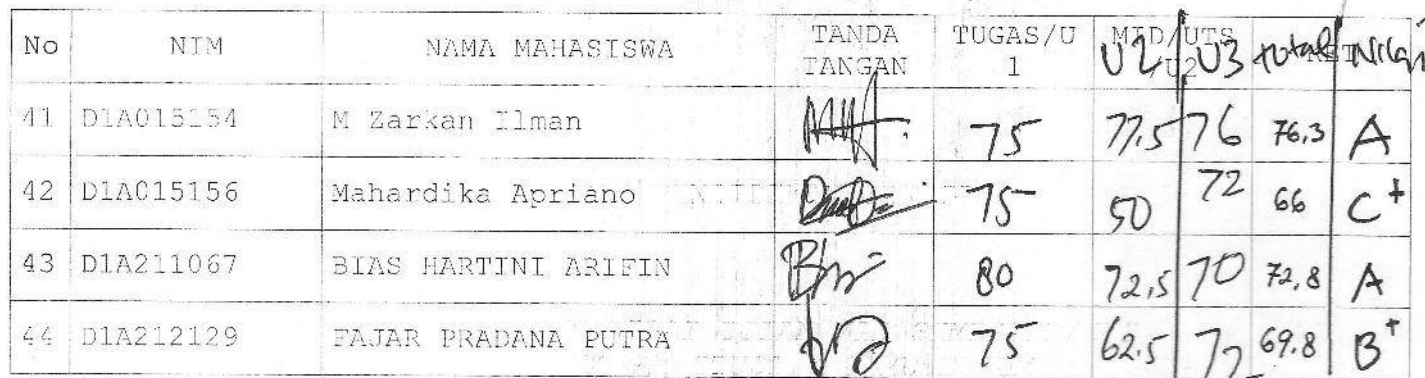 No NIM NAMA MAHASISWA TANDA TANGAN TUGAS/U 1 MID/UTS /U2 U2 U3 total Nilai
41 D1A015154 M Zarkan Ilman 75 77.5 76 76,3 A
42 D1A015156 Mahardika Apriano 75 50 72 66 C+
43 D1A211067 BIAS HARTINI ARIFIN 80 72,5 70 72,8 A
44 D1A212129 FAJAR PRADANA PUTRA 75 62.5 72 69.8 B+